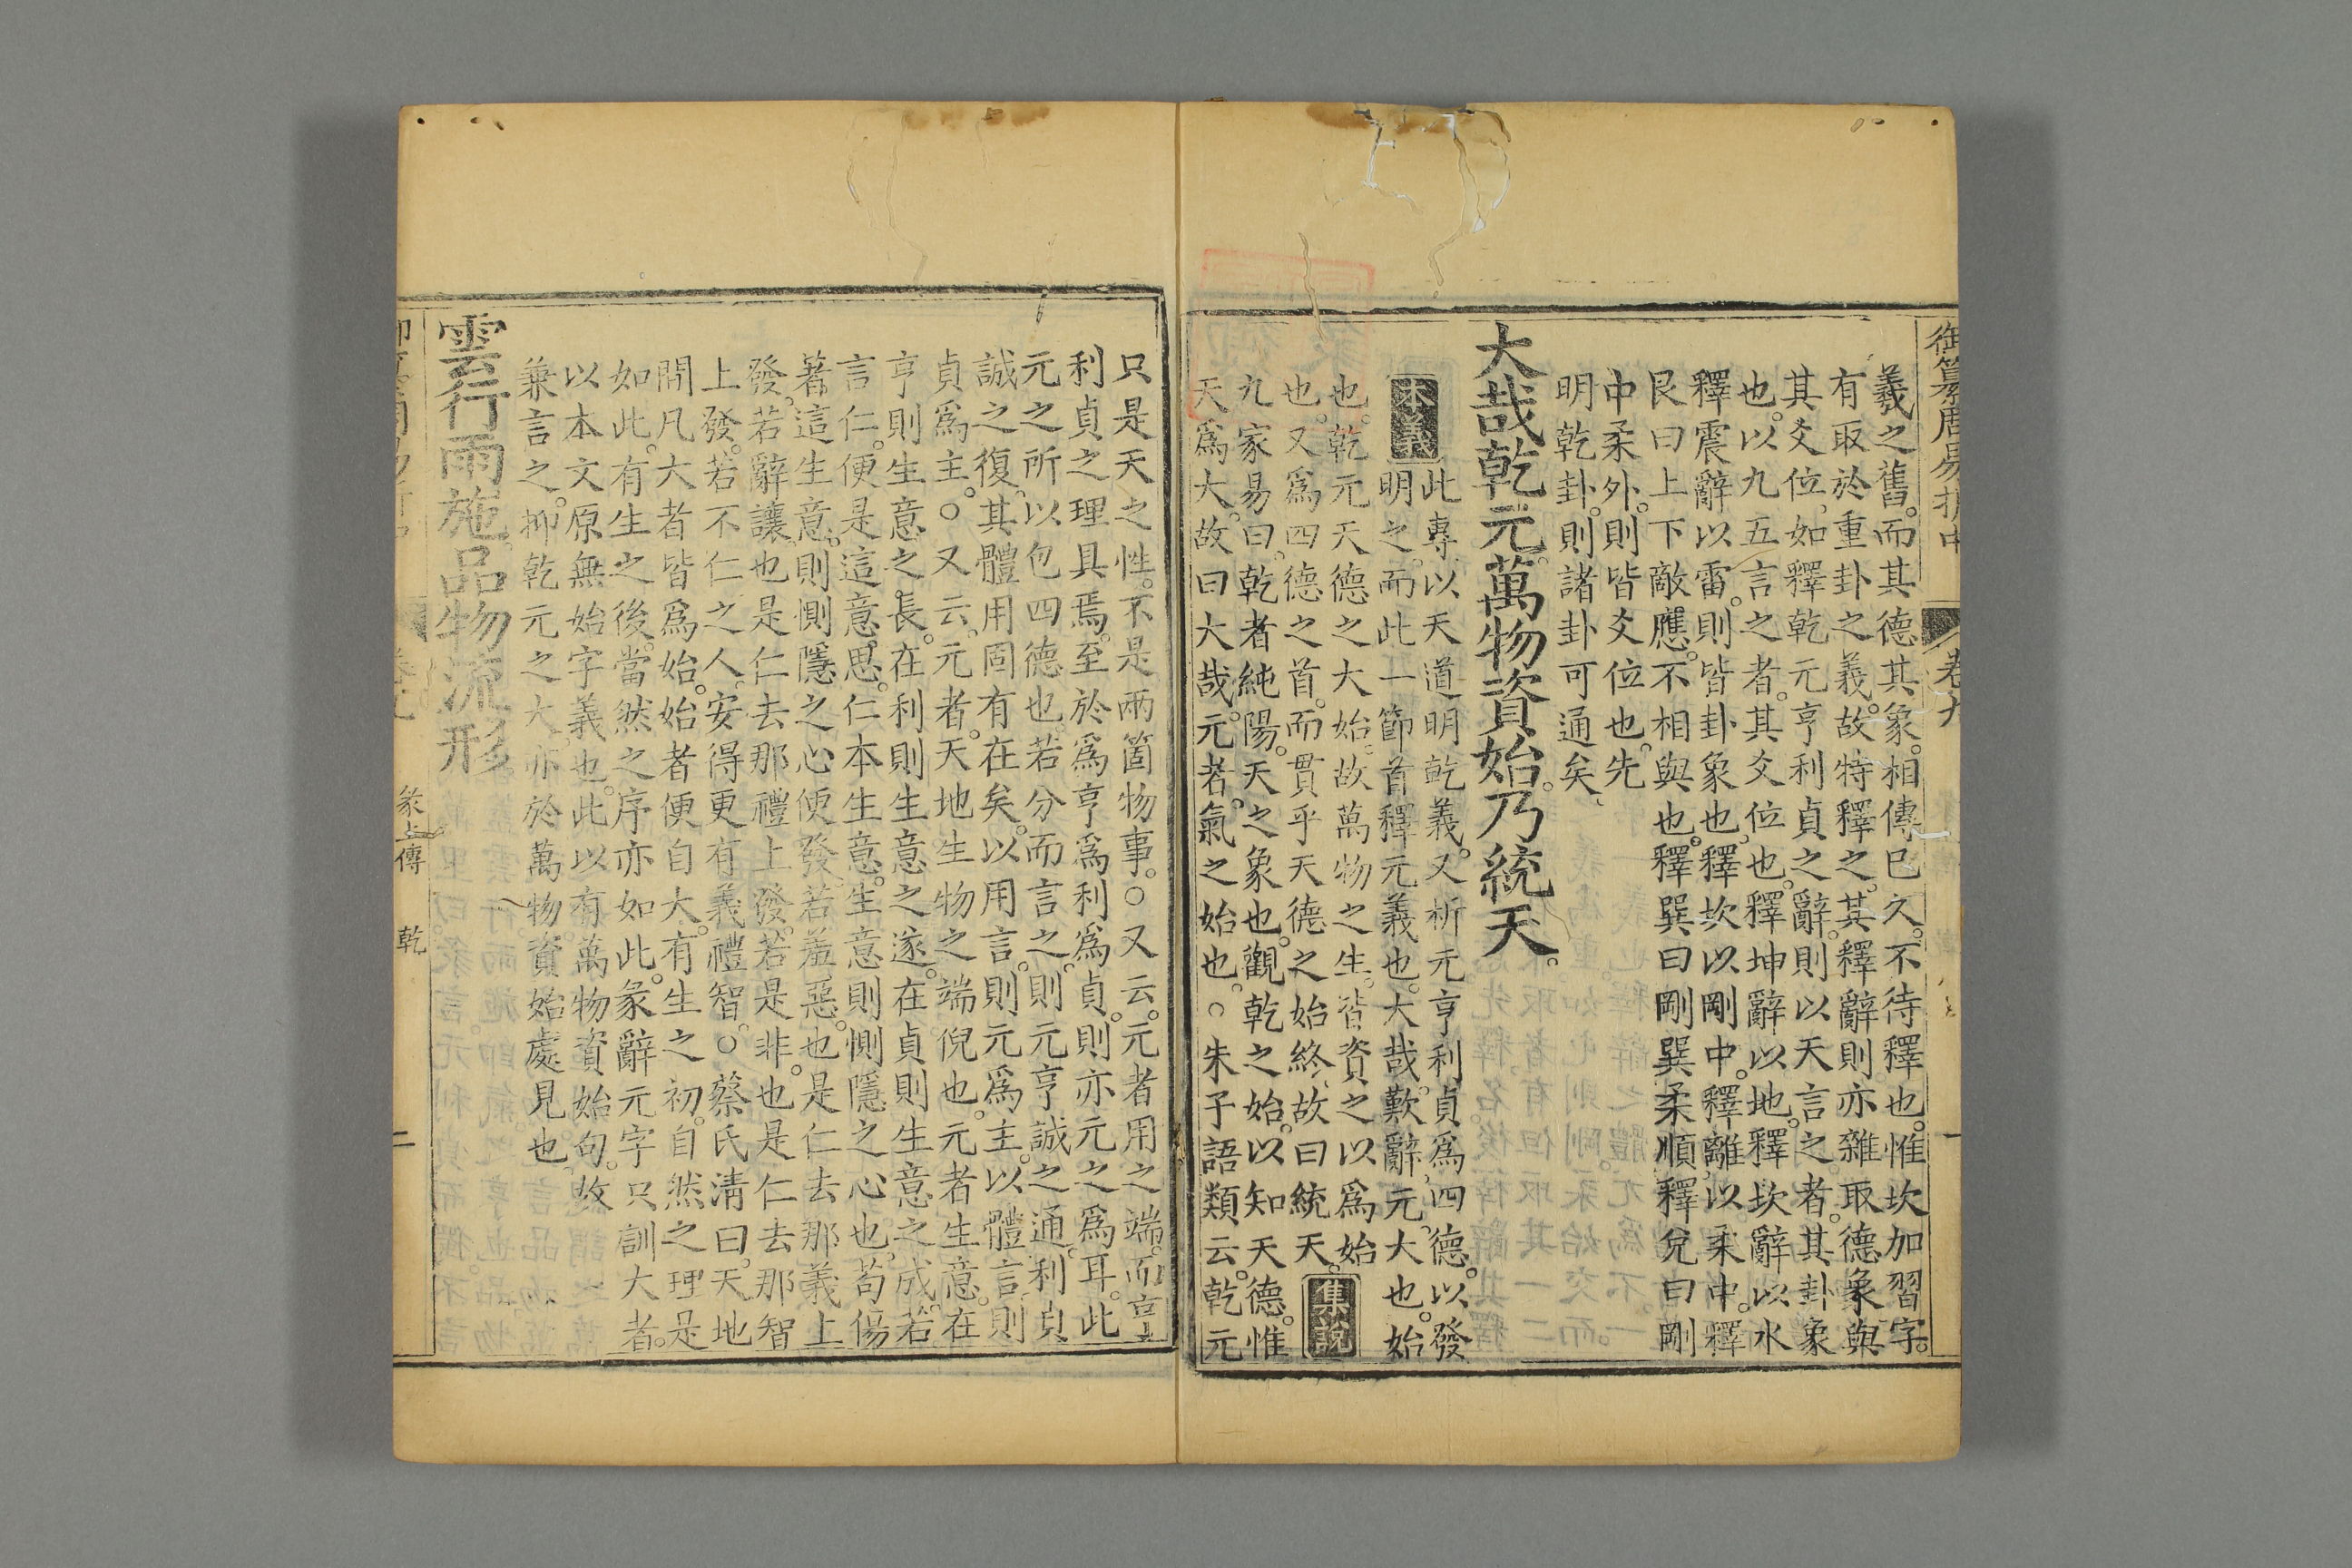 御纂周易折中
卷九
一
羲之舊。而其德其象。相傳已久。不待釋也。惟坎加習字。
有取於重卦之義。故特釋之。其釋辭則亦雜取德象與
其爻位。如釋乾元亨利貞之辭。則以天言之者。其卦象
也。以九五言之者。其爻位也。釋坤辭以地。釋坎辭以水
釋震辭以雷。則皆卦象也。釋坎以剛中。釋離以柔中。釋
艮曰上下敵應。不相與也。釋巽曰剛巽柔順釋兌曰剛
中柔外。則皆爻位也。先
明乾卦。則諸卦可通矣、
大哉乾元。萬物資始。乃統天。
本義
此專以天道明乾義。又析元亨利貞爲四德。以發
明之。而此一節首釋元義也。大哉歎辭。元大也。始
也。乾元天德之大始。故萬物之生。皆資之以爲始
也。又爲四德之首。而貫乎天德之始終。故曰統天。集說
九家易曰。乾者純陽。天之象也。觀乾之始。以知天德。惟
天爲大。故曰大哉。元者。氣之始也。○朱子語類云。乾元
只是天之性。不是兩箇物事。○又云。元者用之端。而亨
利貞之理具焉。至於爲亨爲利爲貞。則亦元之爲耳。此
元之所以包四德也。若分而言之。則元亨誠之通。利貞
誠之復。其體用固有在矣。以用言。則元爲主。以體言。則
貞爲主。○又云。元者。天地生物之端倪也。元者生意。在
亨則生意之長。在利則生意之遂。在貞則生意之成。若
言仁。便是這意思。仁本生意。生意則惻隱之心也。苟傷
著這生意。則惻隱之心便發。若羞惡。也是仁去那義上
發。若辭讓。也是仁去那禮上發。若是非。也是仁去那智
上發。若不仁之人。安得更有義禮智。○蔡氏淸曰。天地
間凡大者皆爲始。始者便自大。有生之初。自然之理是
如此。有生之後。當然之序亦如此。彖辭元字只訓大者。
以本文原無始字義也。此以有萬物資始句。故
兼言之。抑乾元之大。亦於萬物資始處見也
雲行雨施。品物流形
彖上傳 乾
二